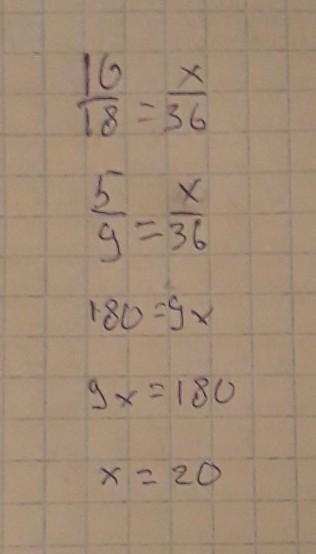 10/18 = x/36
5/9 = x/36
180=9x
9x=180
x=20